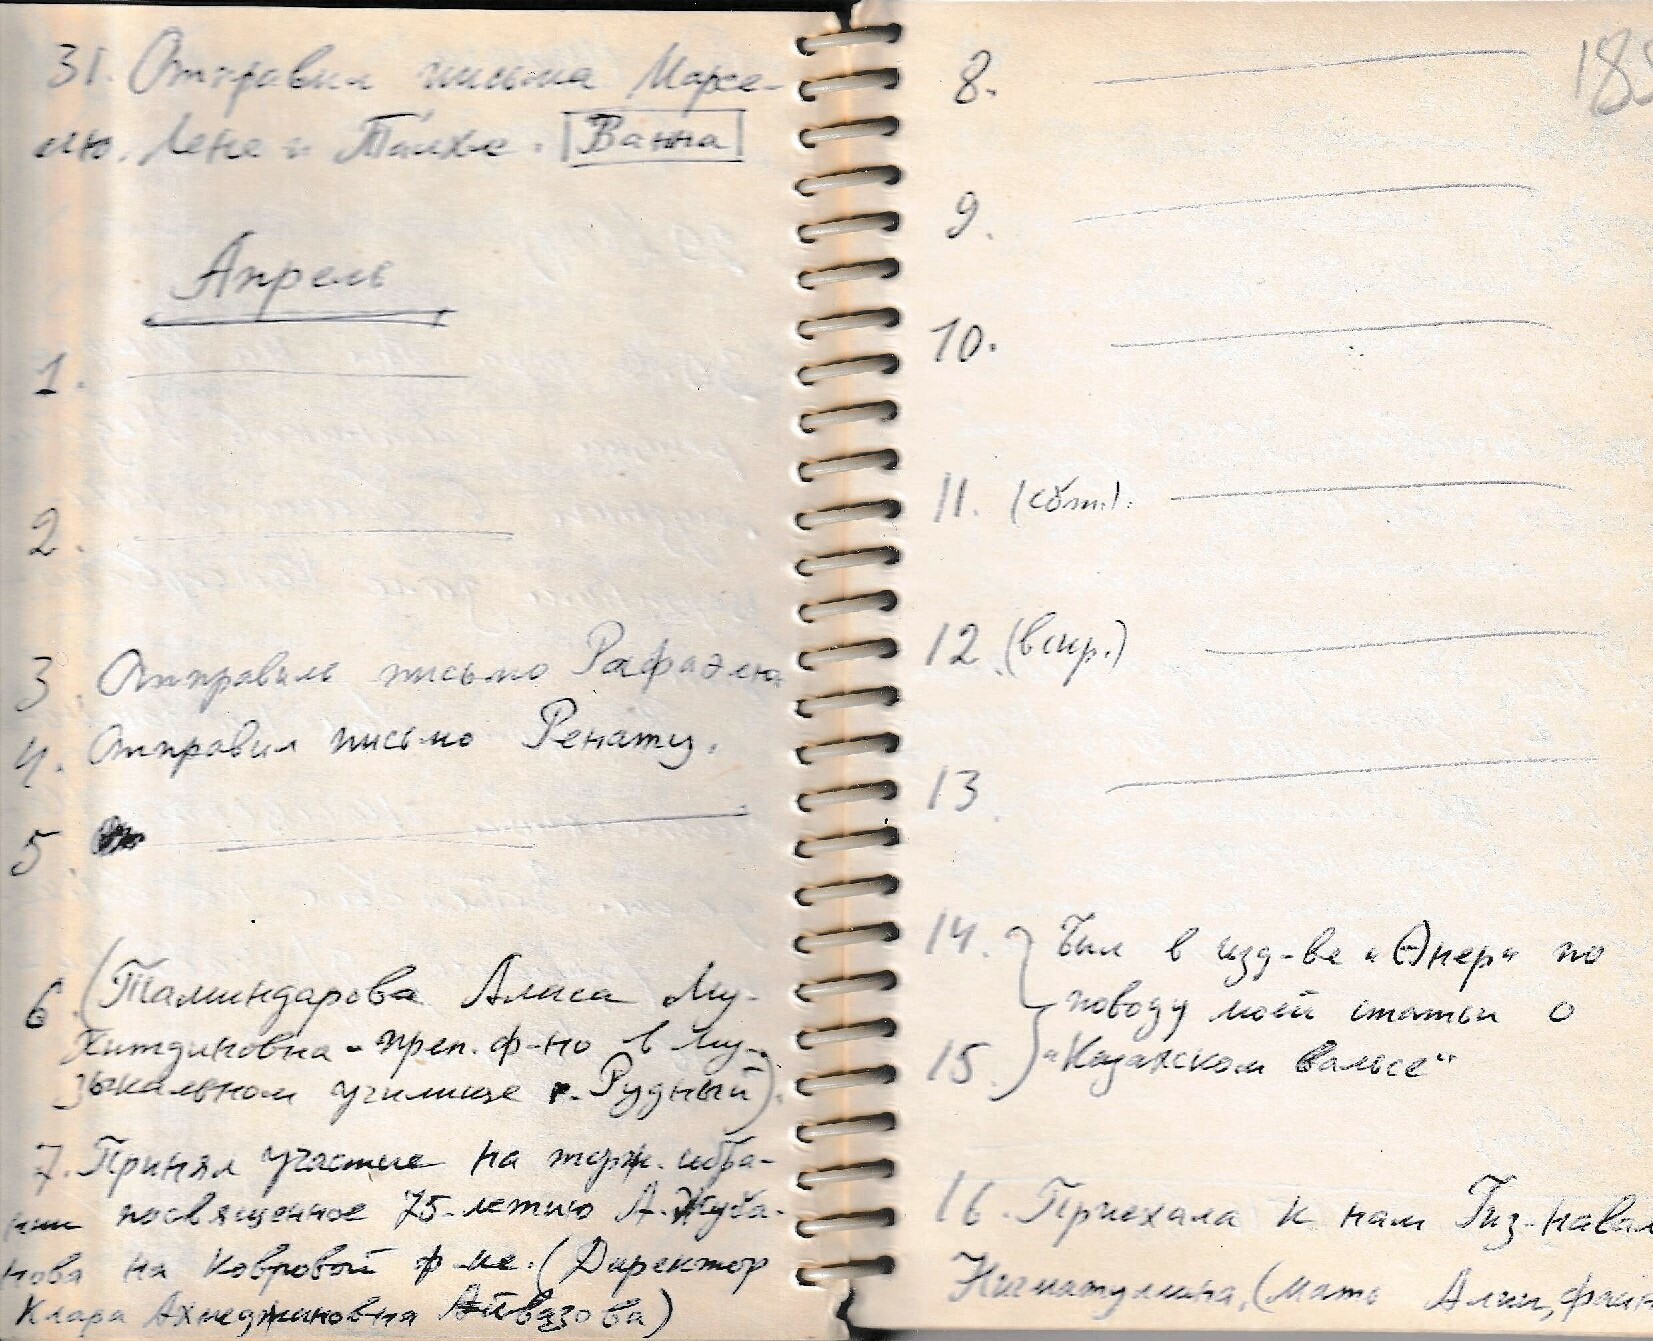 31. Отправил письма Марсе-
лю, Лене и Талхе. Ванна
Апрель
1.
2.
3. Отправил письмо Рафаэлю.
4. Отправил письмо Ренату.
5
6. (Таминдарова Алиса Му-
хитдиновна - преп. ф-но в Му-
зыкальном училище г. Рудный).
7. Принял участие на торж. собра-
нии посвященное 75-летию А. Жуба-
нова на Ковровой ф-ке. (Директор
Клара Ахмеджиновна Айвазова)
8.
9.
10.
11. (сбт.).
12. (вскр.)
13.
14. Был в изд-ве "Өнер" по
поводу моей статьи о
15. "Казахском вальсе"
16. Приехала к нам Гиз-нава
Нигматулина, (мать Алии,